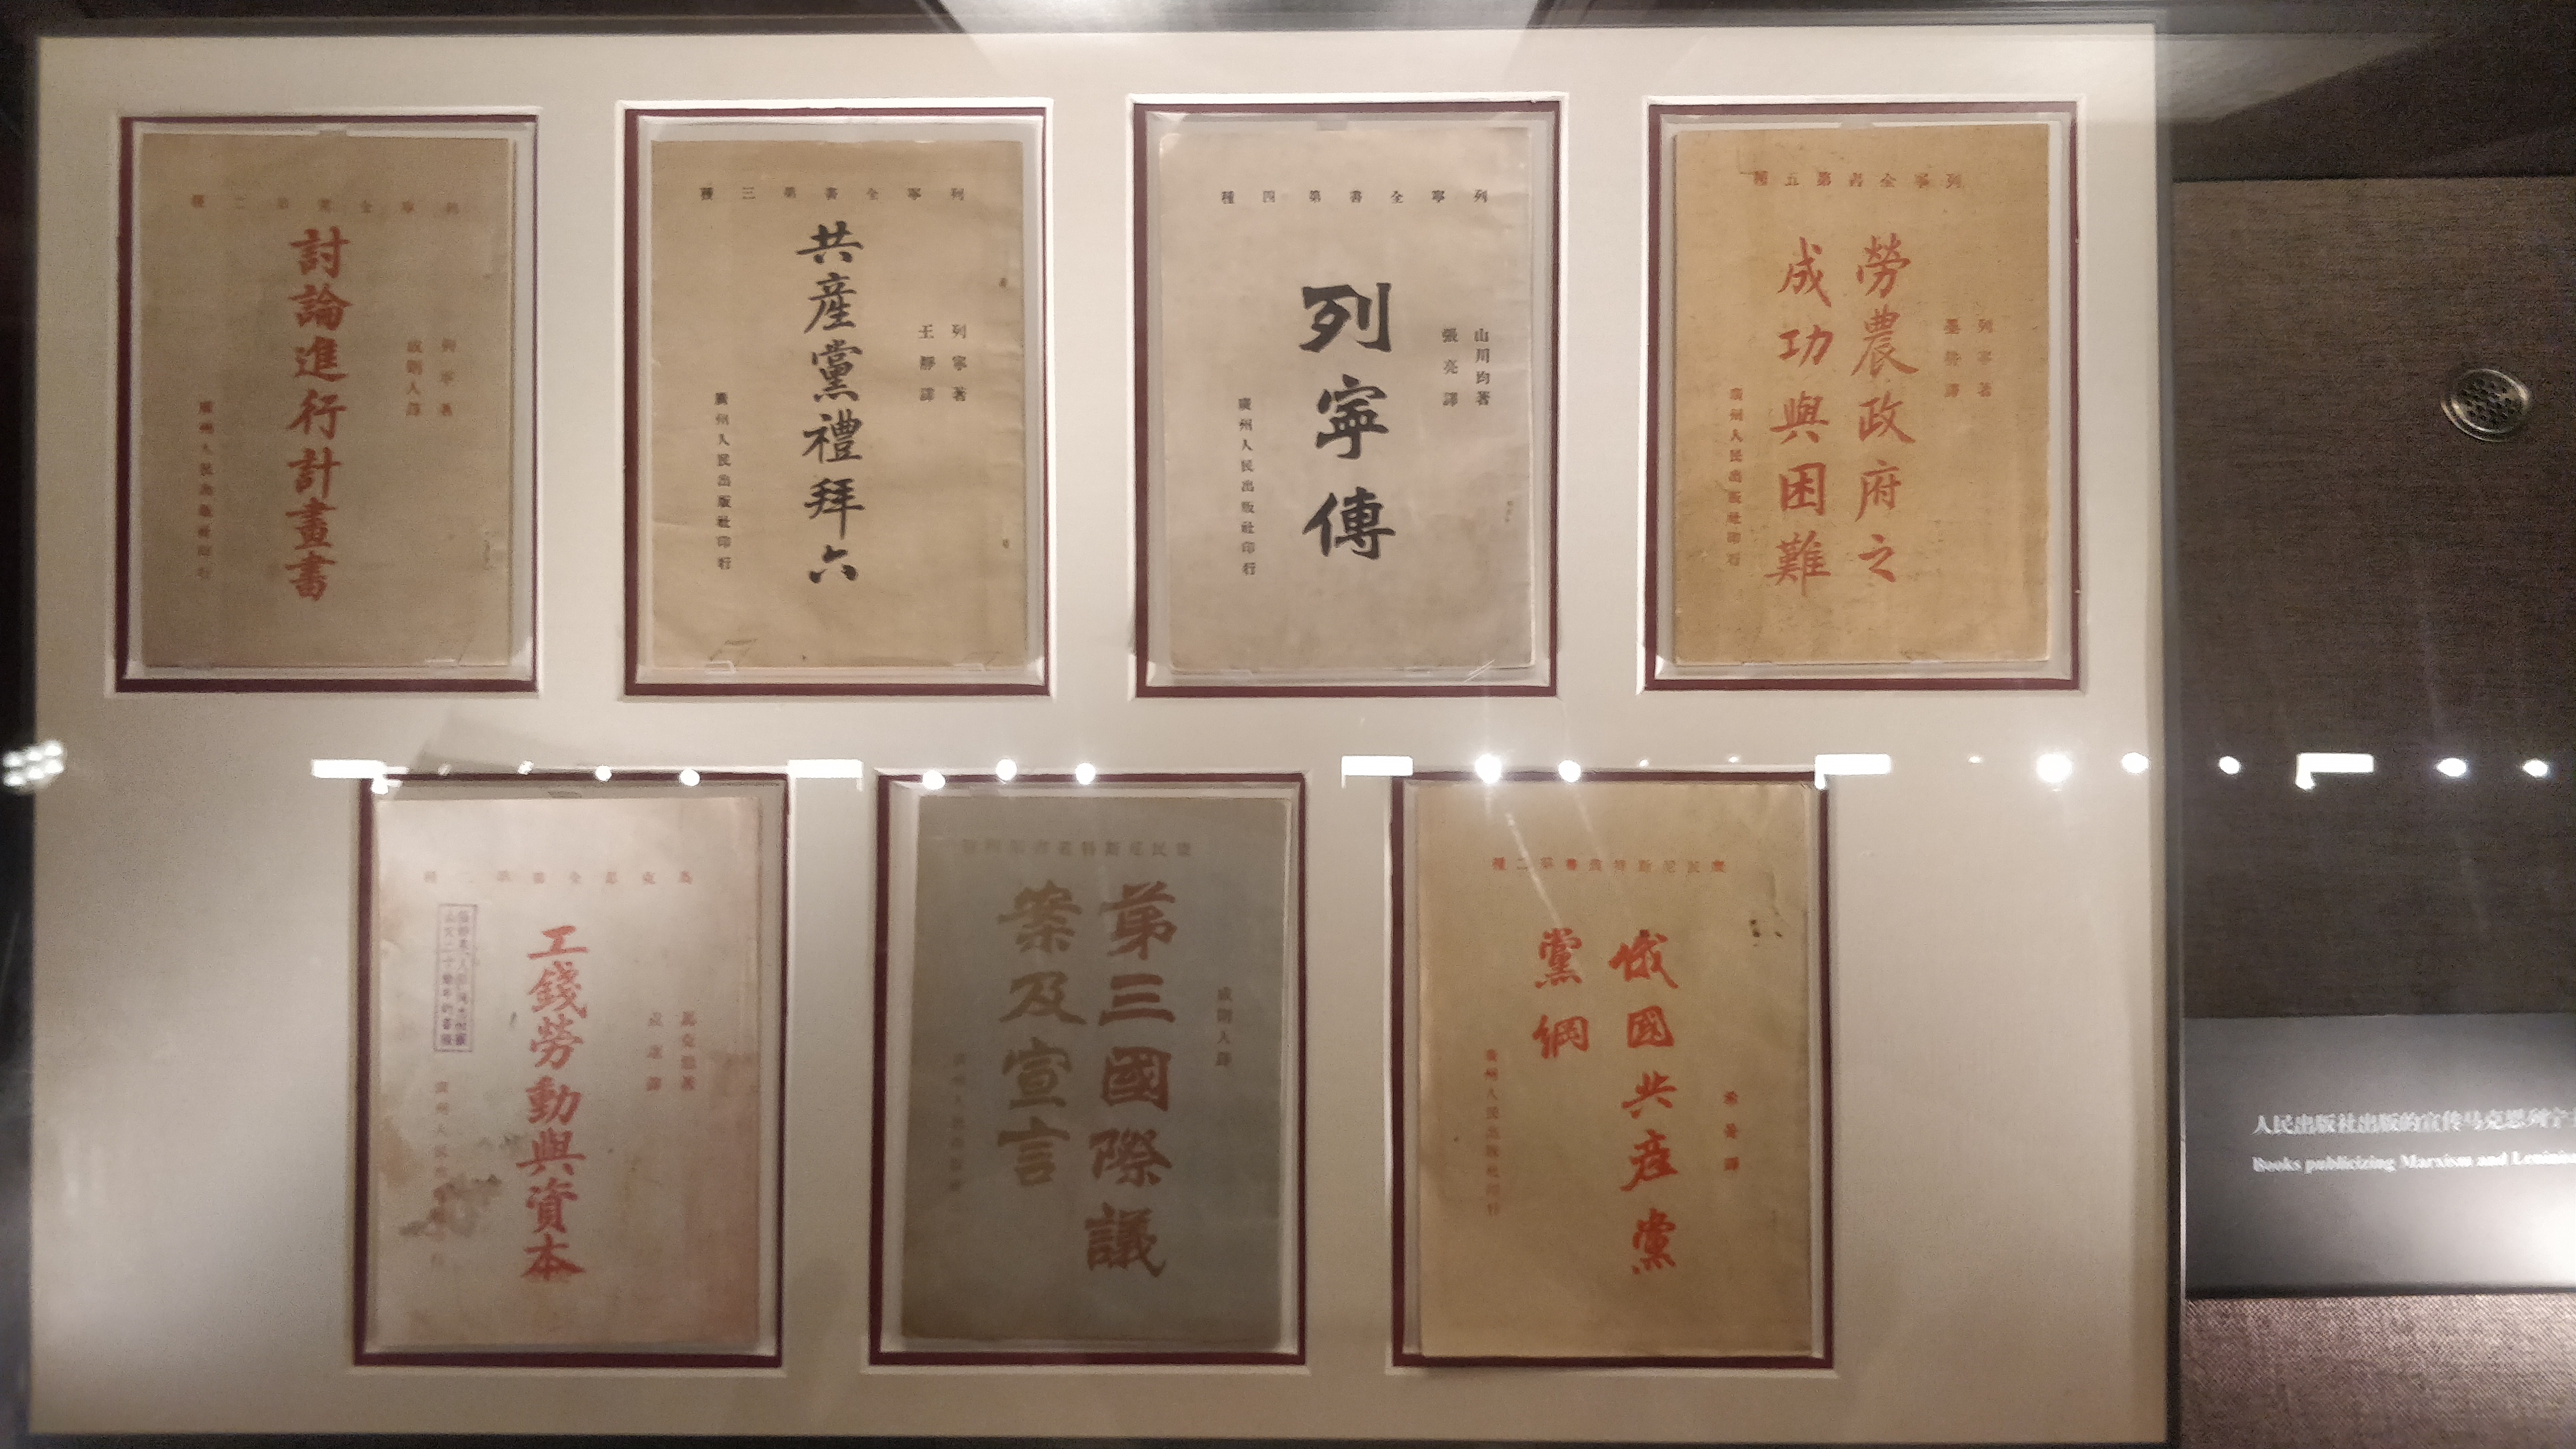 種二第書全寧列
討論進行計畫書
列寧著
成則人譯
廣州人民出版社印行
種三第書全寧列
共產黨禮拜六
列寧著
王靜譯
廣州人民出版社印行
種四第書全寧列
列寧傳
山川均著
張亮譯
廣州人民出版社印行
種五第書全寧列
勞農政府之
成功與困難
列寧著
墨耕譯
廣州人民出版社印行
種二第書全思克馬
工錢勞動與資本
馬克思著
廣州人民
第三國際議
案及宣言
成則人譯
種二第書叢特斯尼民康
俄國共产黨
黨綱
希曼譯
廣州人民出版社印行
人民出版社出版的宣传马克思列宁
Books publicizing Marxism and Leninis